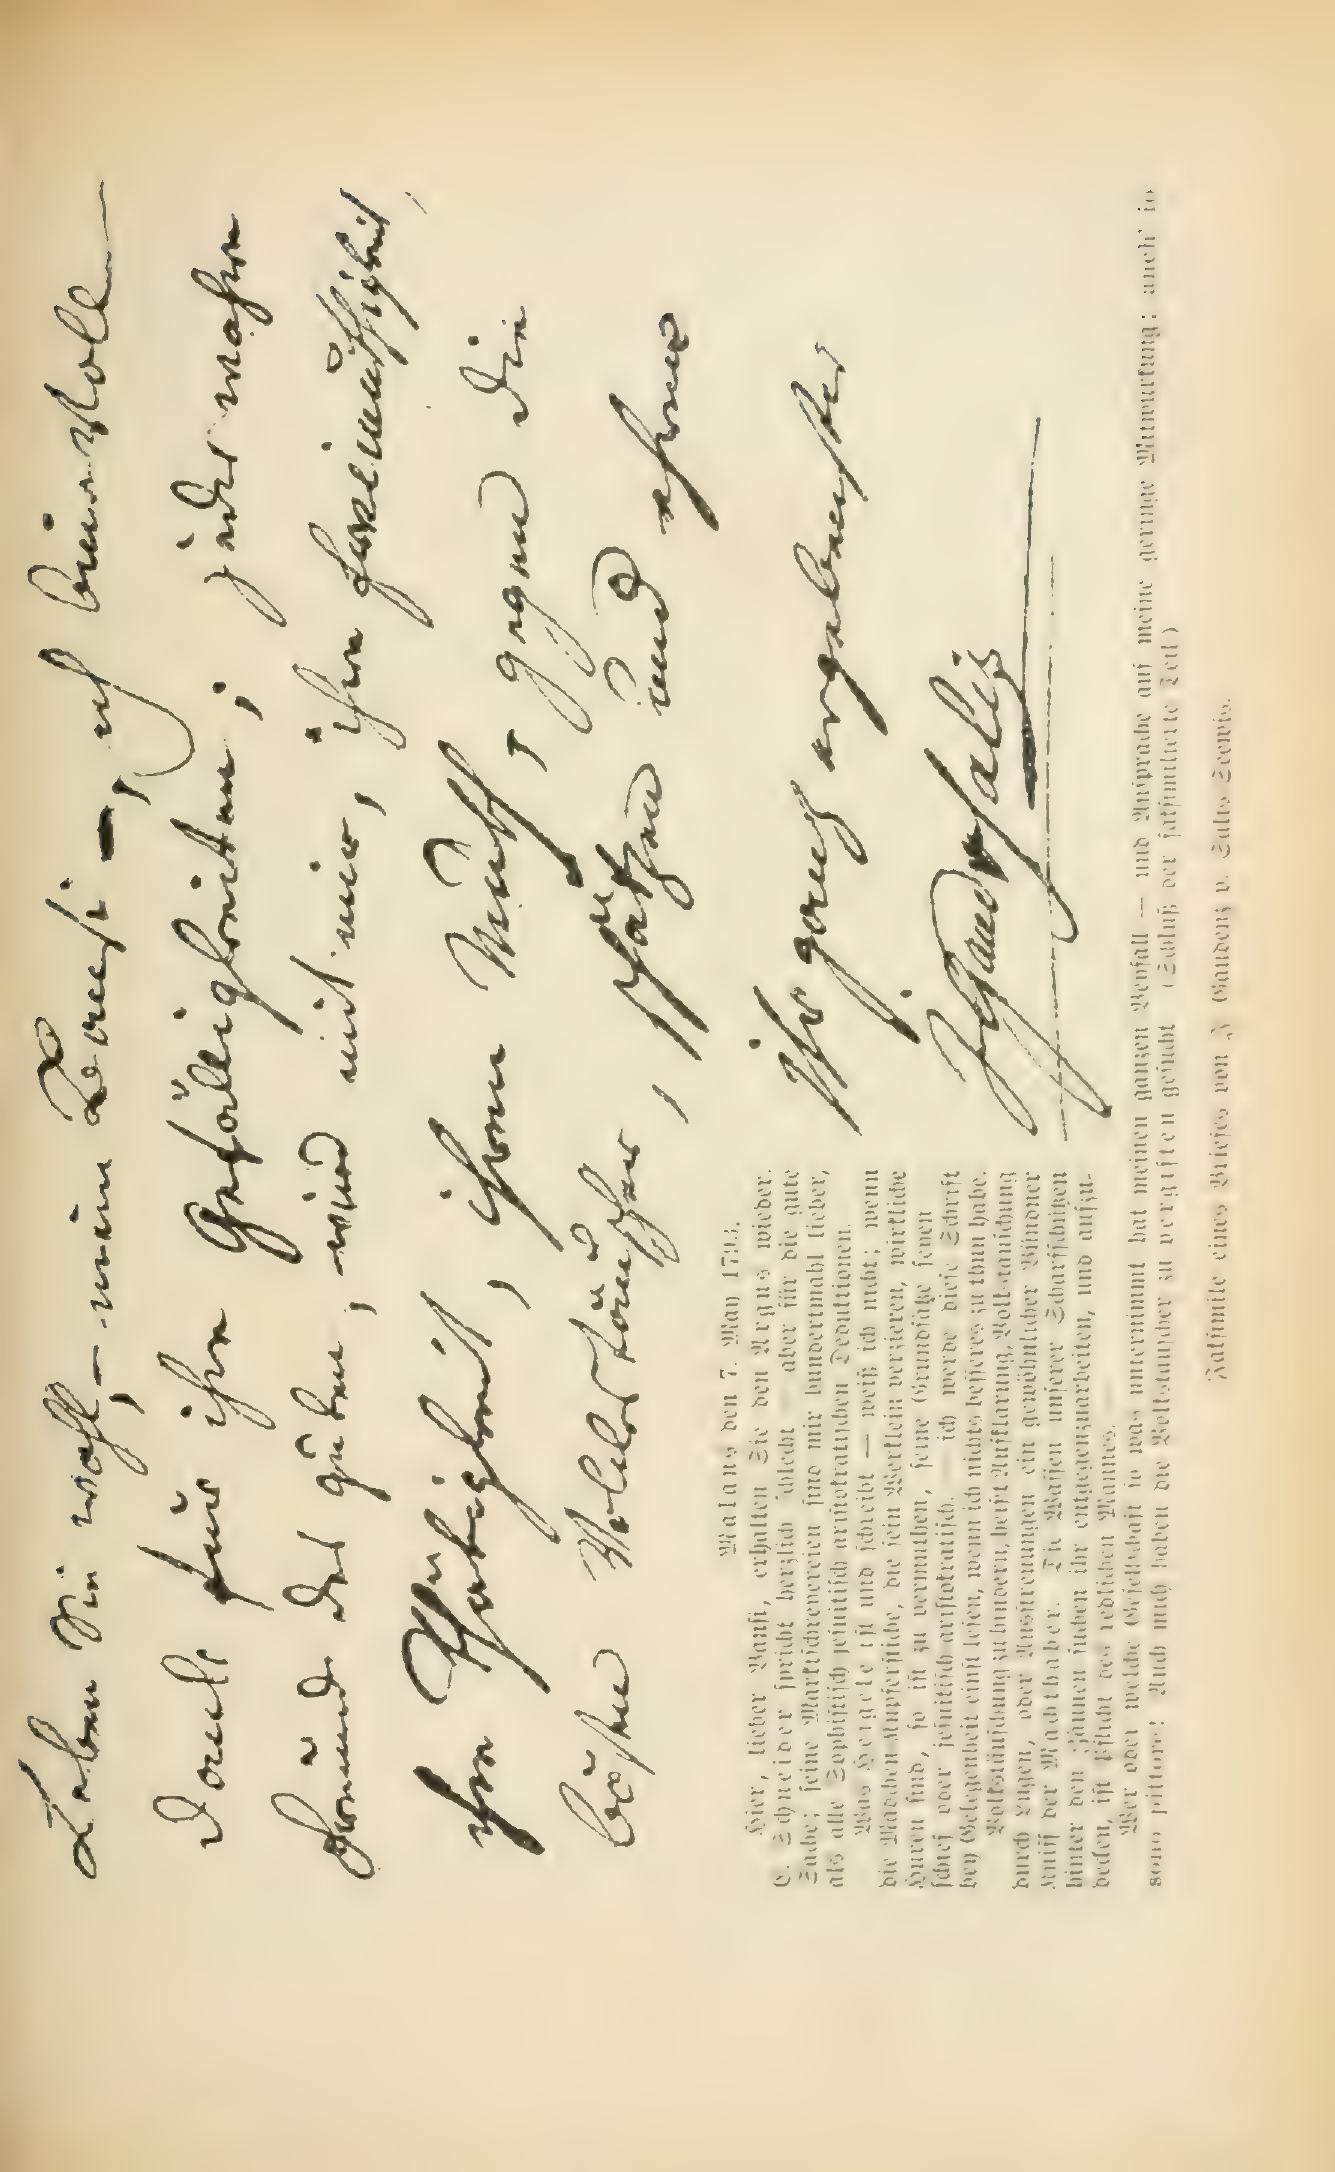 Leben Sie wohl, – mein Bansi –, ich bin voll
Dank für ihre Gefälligkeiten; jeder wahre
Freünd des guten, wird mit mir, ihre freimüthigkeit
ihre Thätigkeit, ihren Muth, gegen die
bösen Volkstäuscher, schätzen und ehren
Ihr ganz ergebenster
JGaud vSalis
Malans den 7. May 1793.
Hier, lieber Bansi, erhalten Sie den Argus wieder.
E. Schneider spricht herzlich schlecht — aber für die gute
Sache; seine Marktschreyereien sind mir hundertmahl lieber,
als alle Sophistisch jesuitisch aristokratischen Deduktionen.
Was Hergete ist und schreibt — weiß ich nicht; wenn
die Mädchen Kupferstiche, die sein Werklein verzieren, wirkliche
Huren sind, so ist zu vermuthen, seine Grundsätze seyen
schief oder jesuitisch aristokratisch. — ich werde diese Schrift
bey Gelegenheit einst lesen, wenn ich nichts besseres zu thun habe.
Volkstäuschung zu hindern, heißt Aufklärung, Volkstäuschung
durch Lügen, oder Ausstreuungen ein gewöhnlicher Bündner
Kniff der Machthaber. Die Waffen unserer Scharfschützen
hinter den Zäunen suchen ihr entgegenzuarbeiten, und aufzu-
decken, ist Pflicht des redlichen Mannes. —
Wer oder welche Gesellschaft so was unternimmt hat meinen ganzen Beyfall — und Ansprache auf meine geringe Mitwürkung: anch' io
sono pittore! Auch mich haben die Volkstäuscher zu vergiften gesucht (Schluß der faksimilierte Teil)
Faksimile eines Briefes von J. Gaudenz v. Salis-Seewis.